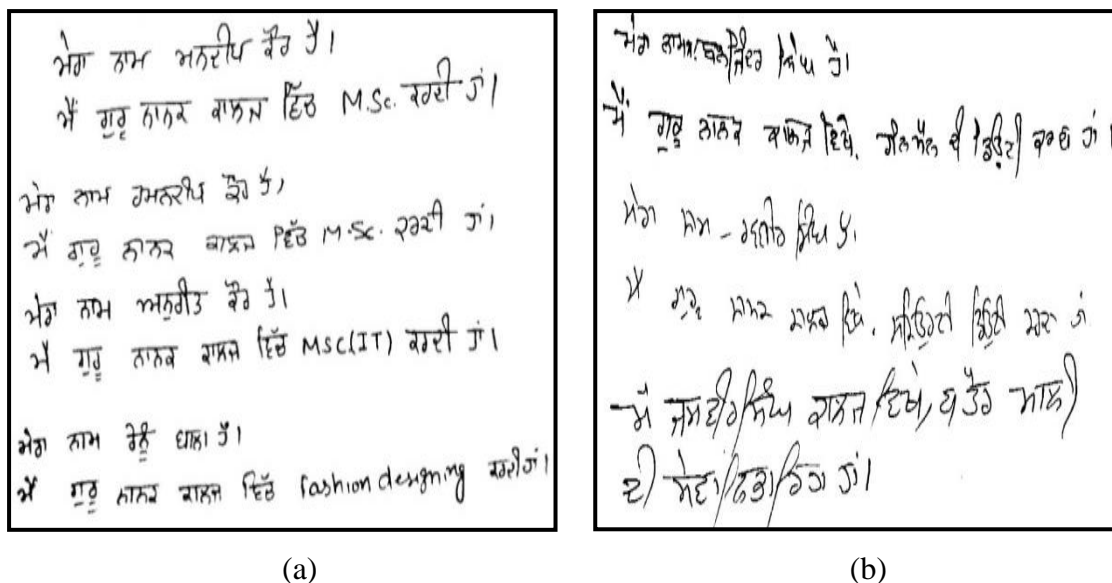 ਮੇਰਾ ਨਾਮ ਮਨਦੀਪ ਕੌਰ ਹੈ।
ਮੈਂ ਗੁਰੂ ਨਾਨਕ ਕਾਲਜ ਵਿੱਚ M.Sc. ਕਰਦੀ ਹਾਂ।
ਮੇਰਾ ਨਾਮ ਰਮਨਦੀਪ ਕੌਰ ਹੈ,
ਮੈਂ ਗੁਰੂ ਨਾਨਕ ਕਾਲਜ ਵਿੱਚ M.Sc. ਕਰਦੀ ਹਾਂ,
ਮੇਰਾ ਨਾਮ ਅਨੁਰੀਤ ਕੌਰ ਹੈ।
ਮੈਂ ਗੁਰੂ ਨਾਨਕ ਕਾਲਜ ਵਿੱਚ MSC(IT) ਕਰਦੀ ਹਾਂ।
ਮੇਰਾ ਨਾਮ ਰੇਨੂੰ ਬਾਲਾ ਹੈ।
ਮੈਂ ਗੁਰੂ ਨਾਨਕ ਕਾਲਜ ਵਿੱਚ fashion designing ਕਰਦੀ ਹਾਂ।
(a)
ਮੇਰਾ ਨਾਮ ਸਿੰਘ ਹੈ।
ਮੈਂ ਗੁਰੂ ਨਾਨਕ ਕਾਲਜ ਵਿਖੇ, ਦੀ ਡਿਊਟੀ ਕਰਦਾ ਹਾਂ।
ਮੇਰਾ ਨਾਮ - ਸਿੰਘ ਹੈ,
ਮੈਂ ਗੁਰੂ ਨਾਨਕ ਕਾਲਜ ਵਿਖੇ, ਸਕਿਉਰਟੀ ਡਿਊਟੀ ਕਰਦਾ ਹਾਂ
ਮੈਂ ਜਸਵੀਰ ਸਿੰਘ ਕਾਲਜ ਵਿਖੇ, ਬਤੌਰ ਮਾਲੀ
ਦੀ ਸੇਵਾ ਨਿਭਾ ਰਿਹਾ ਹਾਂ।
(b)